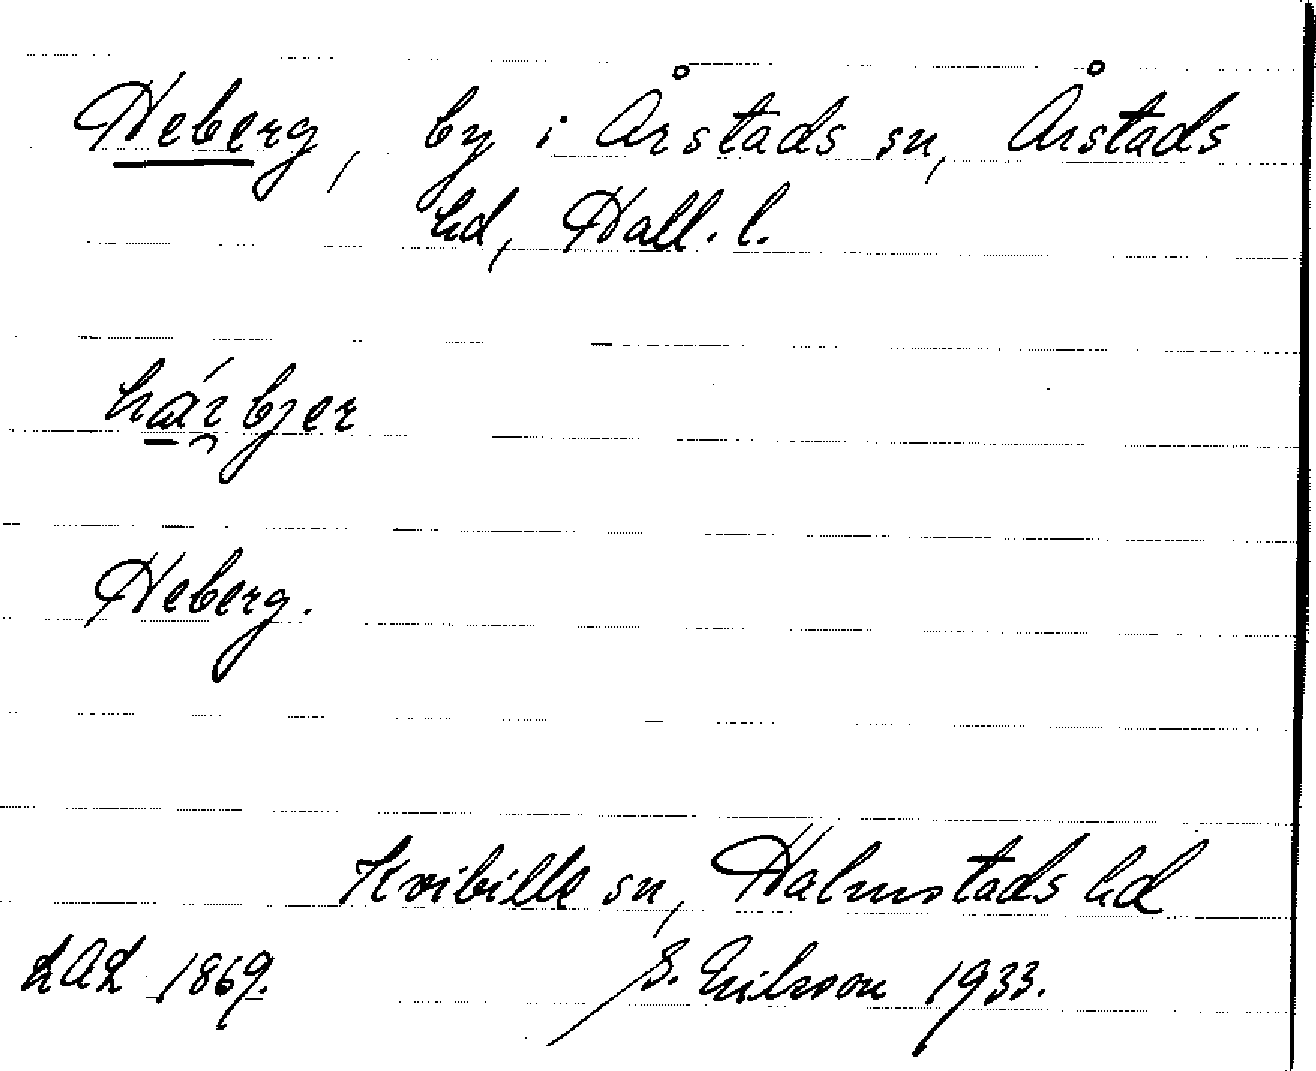 Heberg, by i Årstads sn, Årstads
hd, Hall. l.
härbjer
Heberg.
Kvibille sn, Halmstads hd
LAL 1869. S. Erilsson 1933.